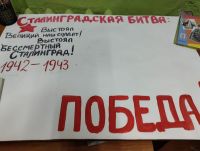 СТАЛИНГРАДСКАЯ БИТВА:
ВЫСТОЯЛ
ВЕЛИКИЙ НАШ СОЛДАТ!
ВЫСТОЯЛ
БЕССМЕРТНЫЙ
СТАЛИНГРАД!
1942-1943
ПОБЕДА